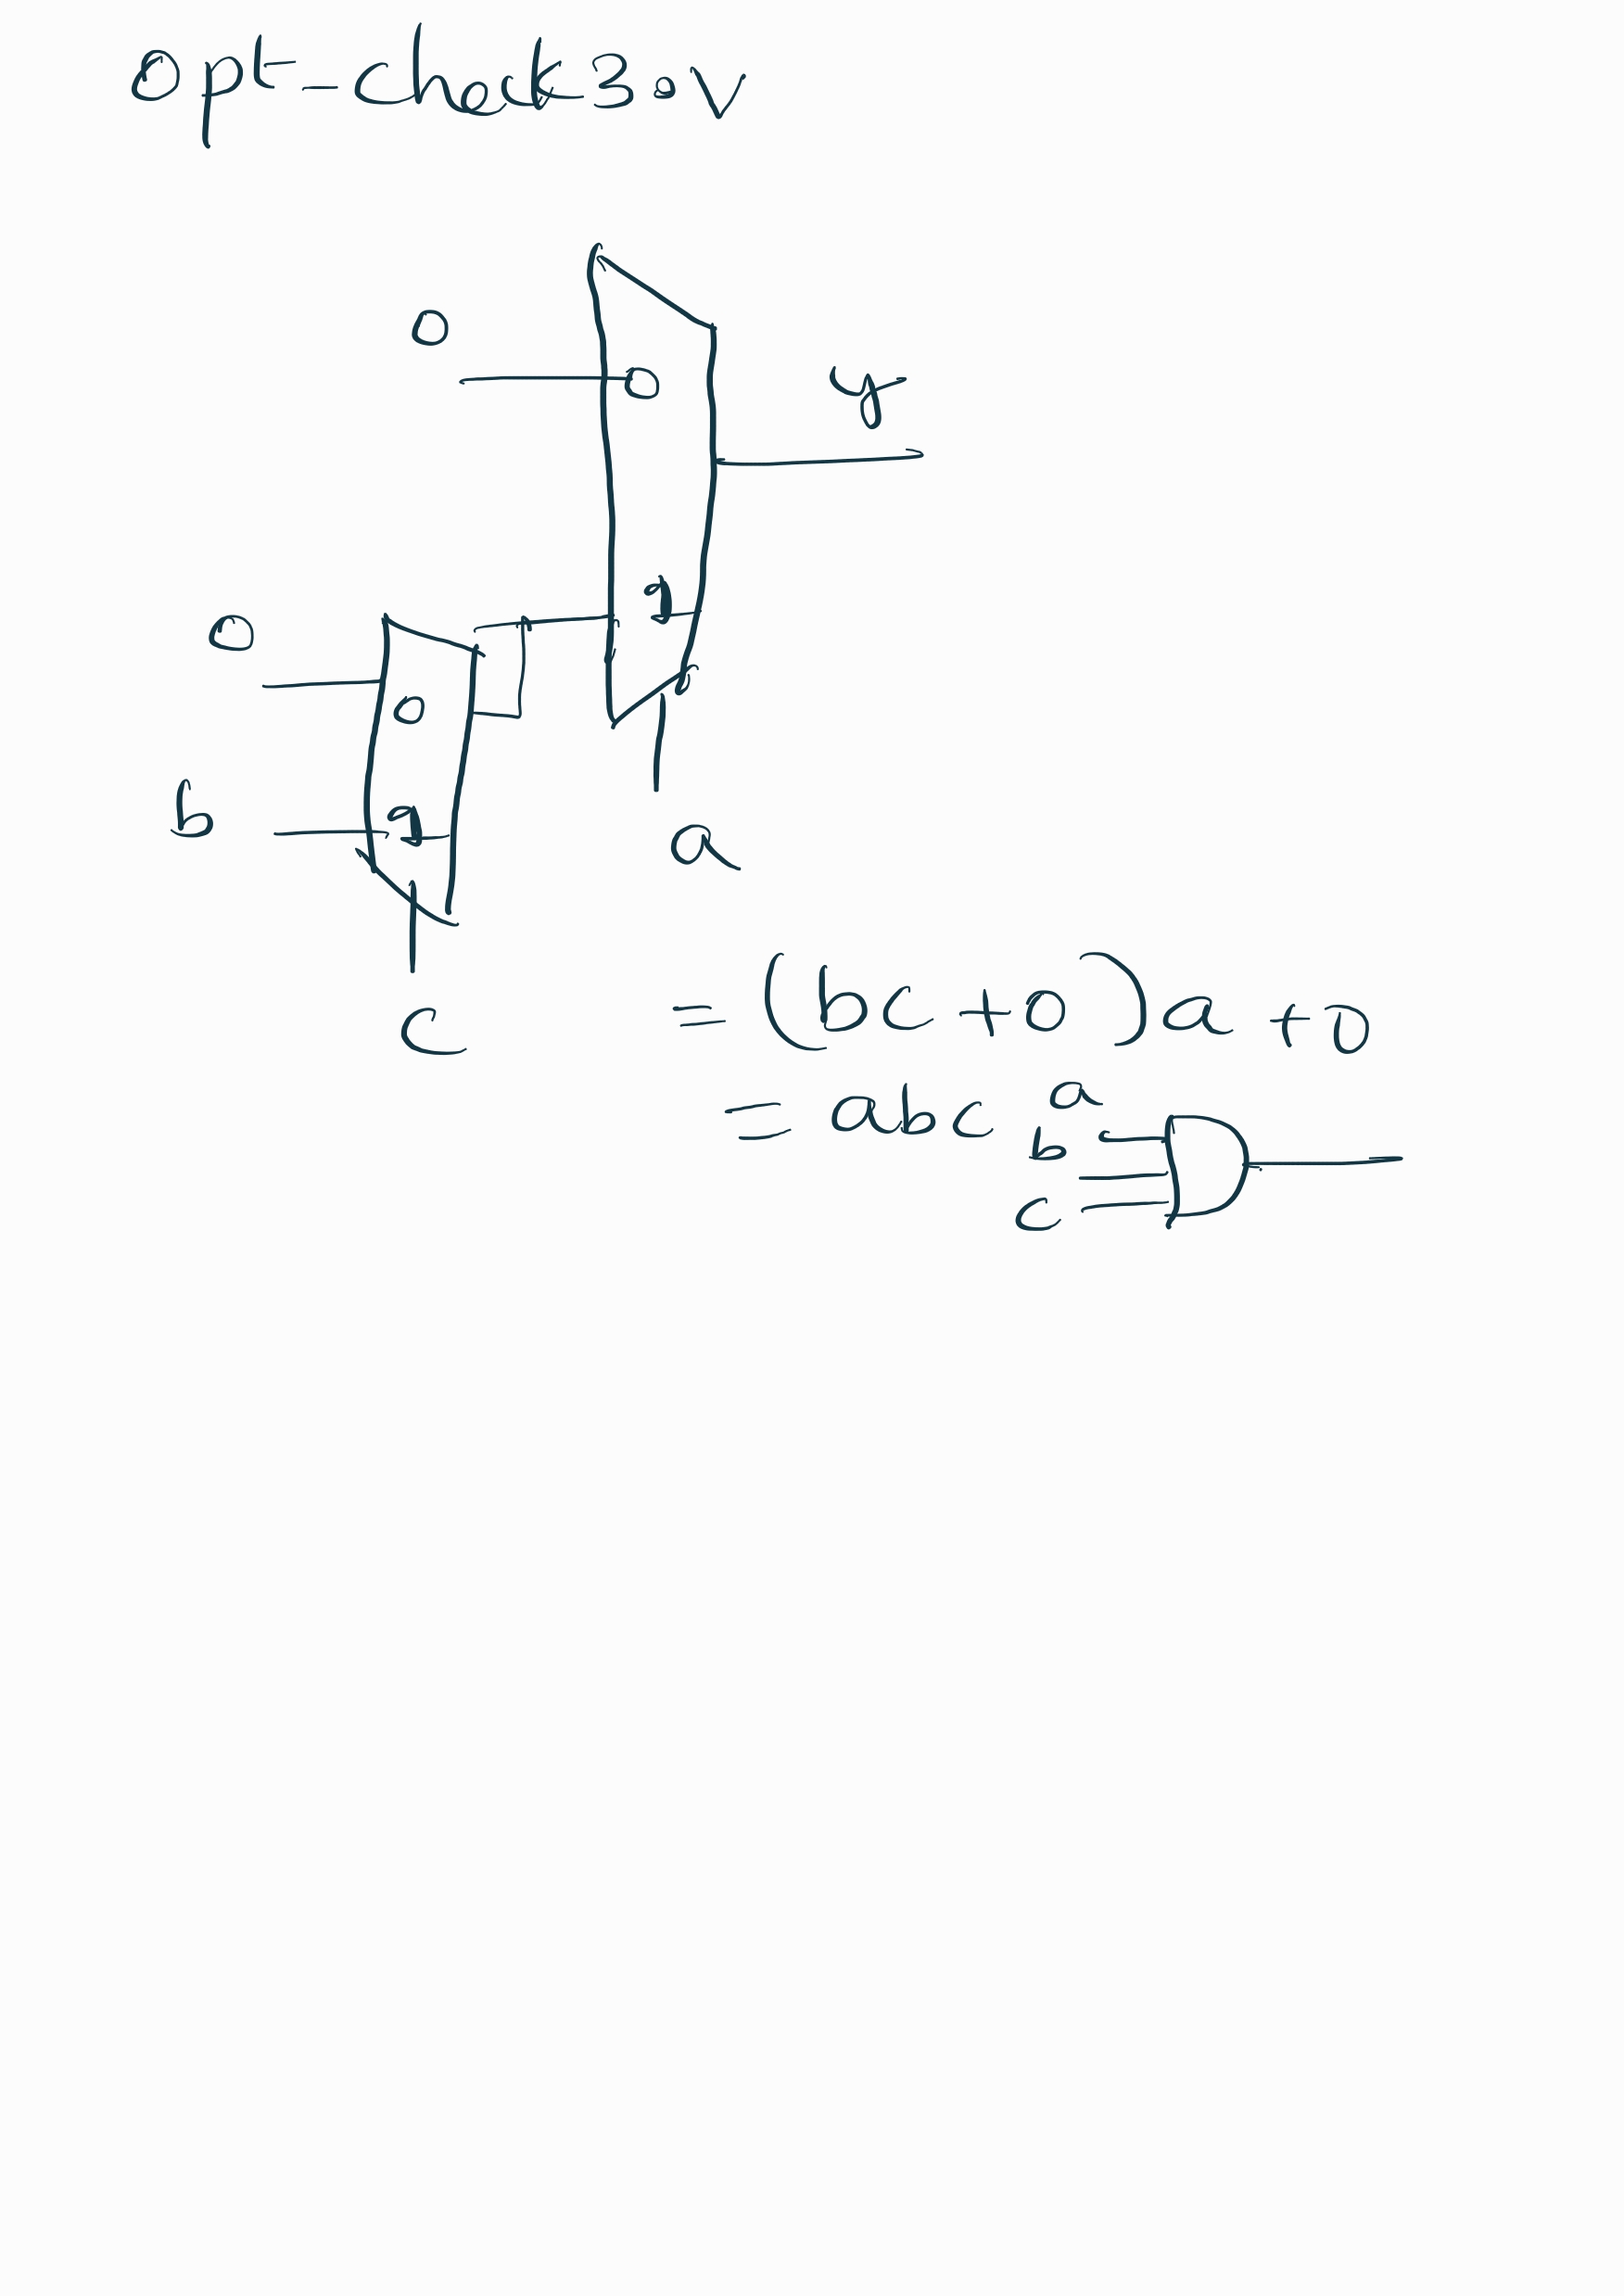 opt-check3.v
0
0
y
1
0
0
b
1
a
c
= (bc+0)a+0
= abc
a
b
c